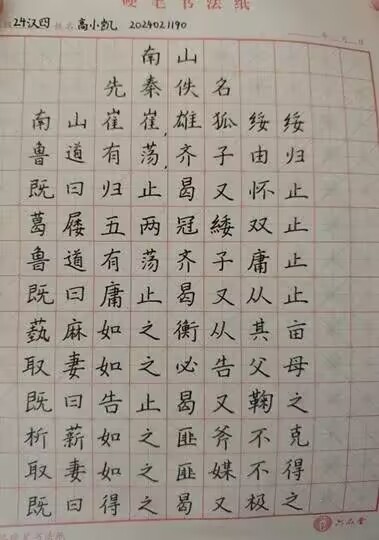 硬笔书法纸
24汉四 姓名 高小凯 2024021190 年 月 日
南山
先秦佚名
南山崔崔,雄狐绥绥
鲁道有荡,齐子由归
既曰归止曷又怀止
葛屦五两冠緌双止
鲁道有荡齐子庸止
既曰庸止曷又从止
蓺麻如之衡从其亩
取妻如之必告父母
既曰告止曷又鞠之
析薪如之匪斧不克
取妻如之匪媒不得
既曰得之曷又极之
六品堂